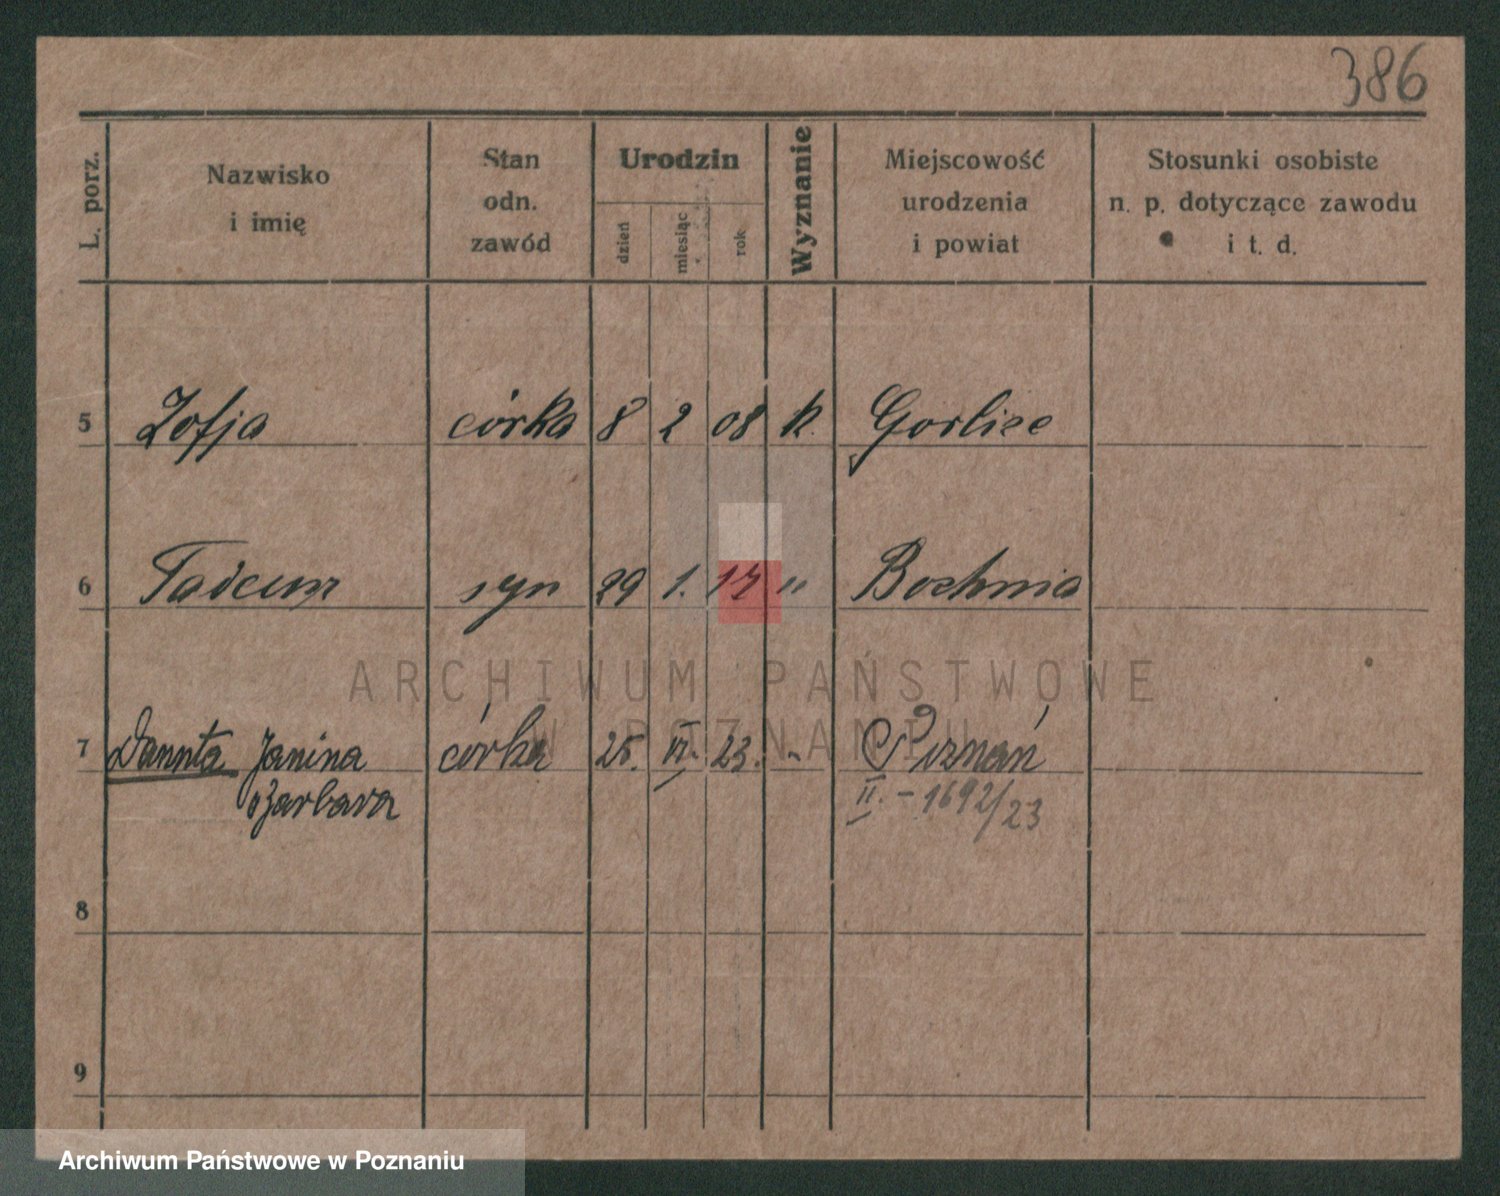 386
L. porz.
Nazwisko
i imię
Stan
odn.
zawód
Urodzin
dzień
miesiąc
rok
Wyznanie
Miejscowość
urodzenia
i powiat
Stosunki osobiste
n. p. dotyczące zawodu
i t. d.
5 Zofja córka 8 2 08 k. Gorlice
6 Tadeusz syn 29 1. 17 " Bochnia
ARCHIWUM PAŃSTWOWE
W POZNANIU
7 Danuta Janina córka 25. VI. 23. " Poznań
Barbara II. - 1692/23
8
9
Archiwum Państwowe w Poznaniu